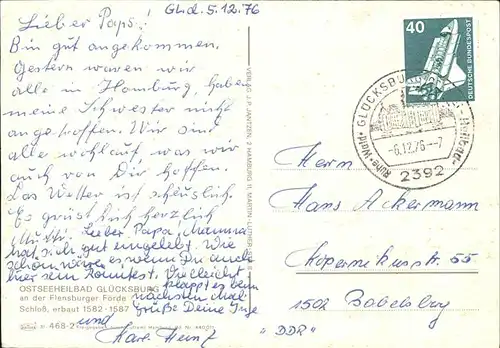 Gld. 5.12.76
Lieber Papa!
Bin gut angekommen.
Gestern waren wir
alle in Hamburg, haben
meine Schwester nicht
angetroffen. Wir sind
alle wohlauf, was wir
auch von Dir hoffen.
Das Wetter ist scheuslich.
Es grüst Dich herzlich
Mutti. Lieber Papa, Mamma
hat sich gut eingelebt. Wie
schön wäre es wenn Du auch
hier sein könntest. Vielleicht
klappt es beim
nächsten Mal
Grüße Deine Inge
und
Karl-Heinz
OSTSEEHEILBAD GLÜCKSBURG
an der Flensburger Förde
Schloß, erbaut 1582-1587
468-2
VERLAG J. P. JANTZEN, 2 HAMBURG 11, MARTIN-LUTHER-
40
DEUTSCHE BUNDESPOST
GLÜCKSBURG
Ruhe · Wald ·
-6.12.76-7
2392
Herrn
Hans Ackermann
Kopernikusstr. 55
1502 Babelsberg
"DDR"